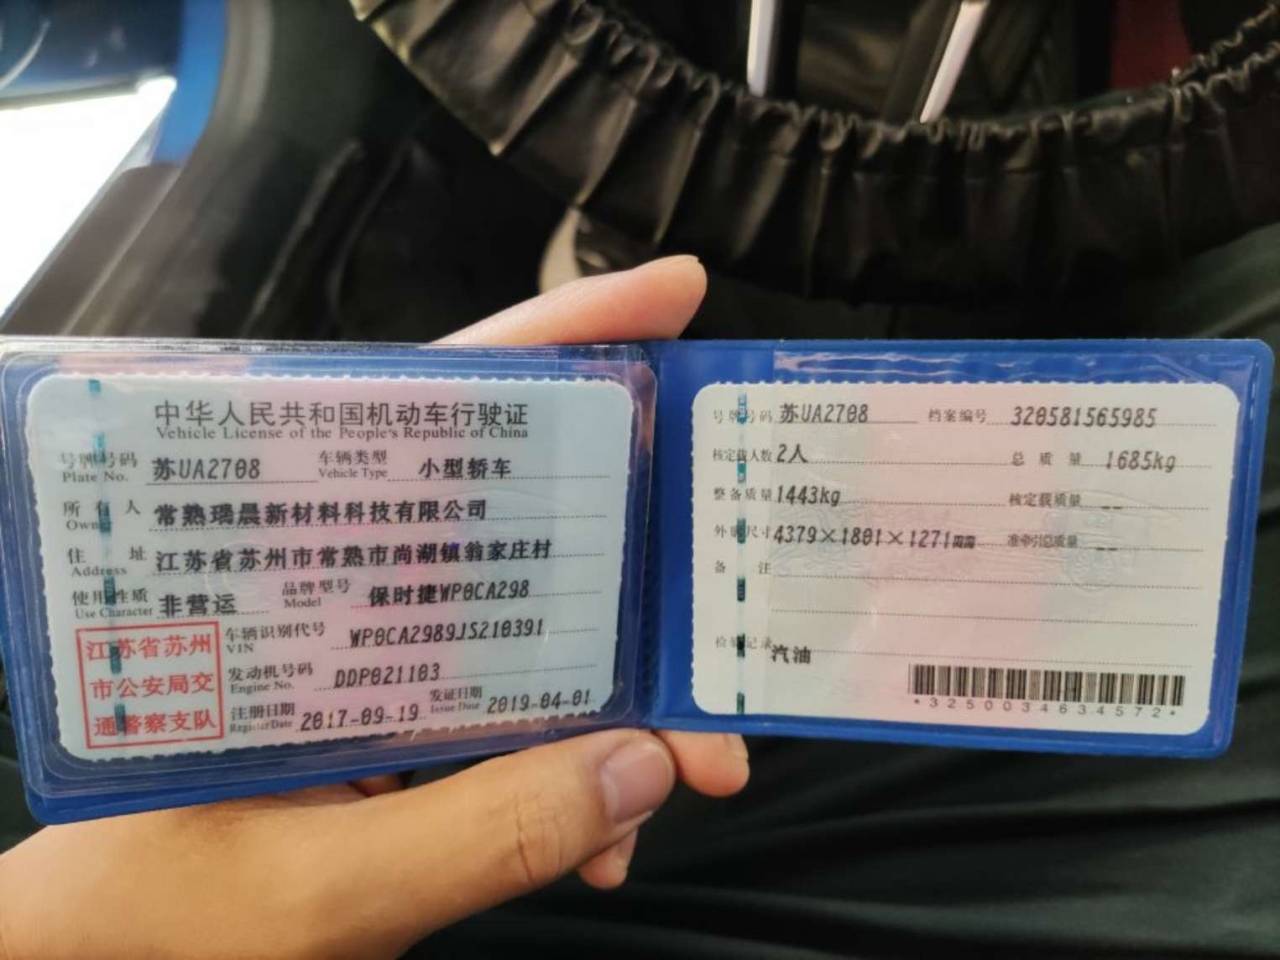 中华人民共和国机动车行驶证
Vehicle License of the People's Republic of China
号牌号码 苏UA2708 车辆类型 小型轿车
Plate No. Vehicle Type
所有人 常熟瑞晨新材料科技有限公司
Owner
住址 江苏省苏州市常熟市尚湖镇翁家庄村
Address
使用性质 非营运 品牌型号 保时捷WP0CA298
Use Character Model
车辆识别代号 WP0CA2989JS210391
VIN
发动机号码 DDP021103
Engine No.
注册日期 2017-09-19 发证日期 2019-04-01
Register Date Issue Date
江苏省苏州
市公安局交
通警察支队
号牌号码 苏UA2708 档案编号 320581565985
核定载人数 2人 总质量 1685kg
整备质量 1443kg 核定载质量 --
外廓尺寸 4379×1801×1271mm 准牵引总质量 --
备注
检验记录 汽油
*3250034634572*